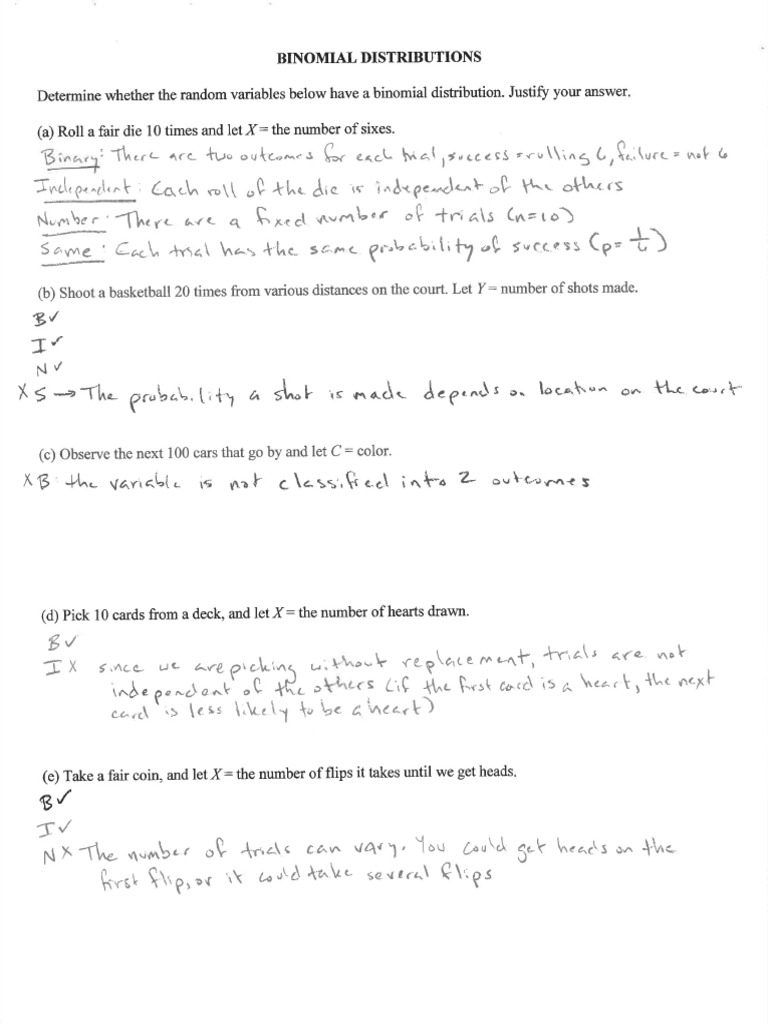 BINOMIAL DISTRIBUTIONS
Determine whether the random variables below have a binomial distribution. Justify your answer.
(a) Roll a fair die 10 times and let X = the number of sixes.
Binary: There are two outcomes for each trial, success = rolling 6, failure = not 6
Independent: Each roll of the die is independent of the others
Number: There are a fixed number of trials (n=10)
Same: Each trial has the same probability of success (p= 1/6)
(b) Shoot a basketball 20 times from various distances on the court. Let Y = number of shots made.
B✓
I✓
N✓
X S → The probability a shot is made depends on location on the court
(c) Observe the next 100 cars that go by and let C = color.
X B: the variable is not classified into 2 outcomes
(d) Pick 10 cards from a deck, and let X = the number of hearts drawn.
B✓
I X since we are picking without replacement, trials are not
independent of the others (if the first card is a heart, the next
card is less likely to be a heart)
(e) Take a fair coin, and let X = the number of flips it takes until we get heads.
B✓
I✓
N X The number of trials can vary. You could get heads on the
first flip, or it could take several flips